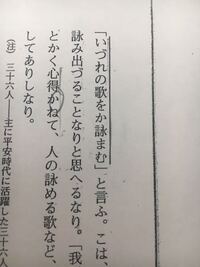 「いづれの歌をか詠まむ」と言ふ。こは、
詠み出づることなりと思へるなり。「我
どかく心得かねて、人の詠める歌など、
してありしなり。
(注) 三十六人――主に平安時代に活躍した三十六人